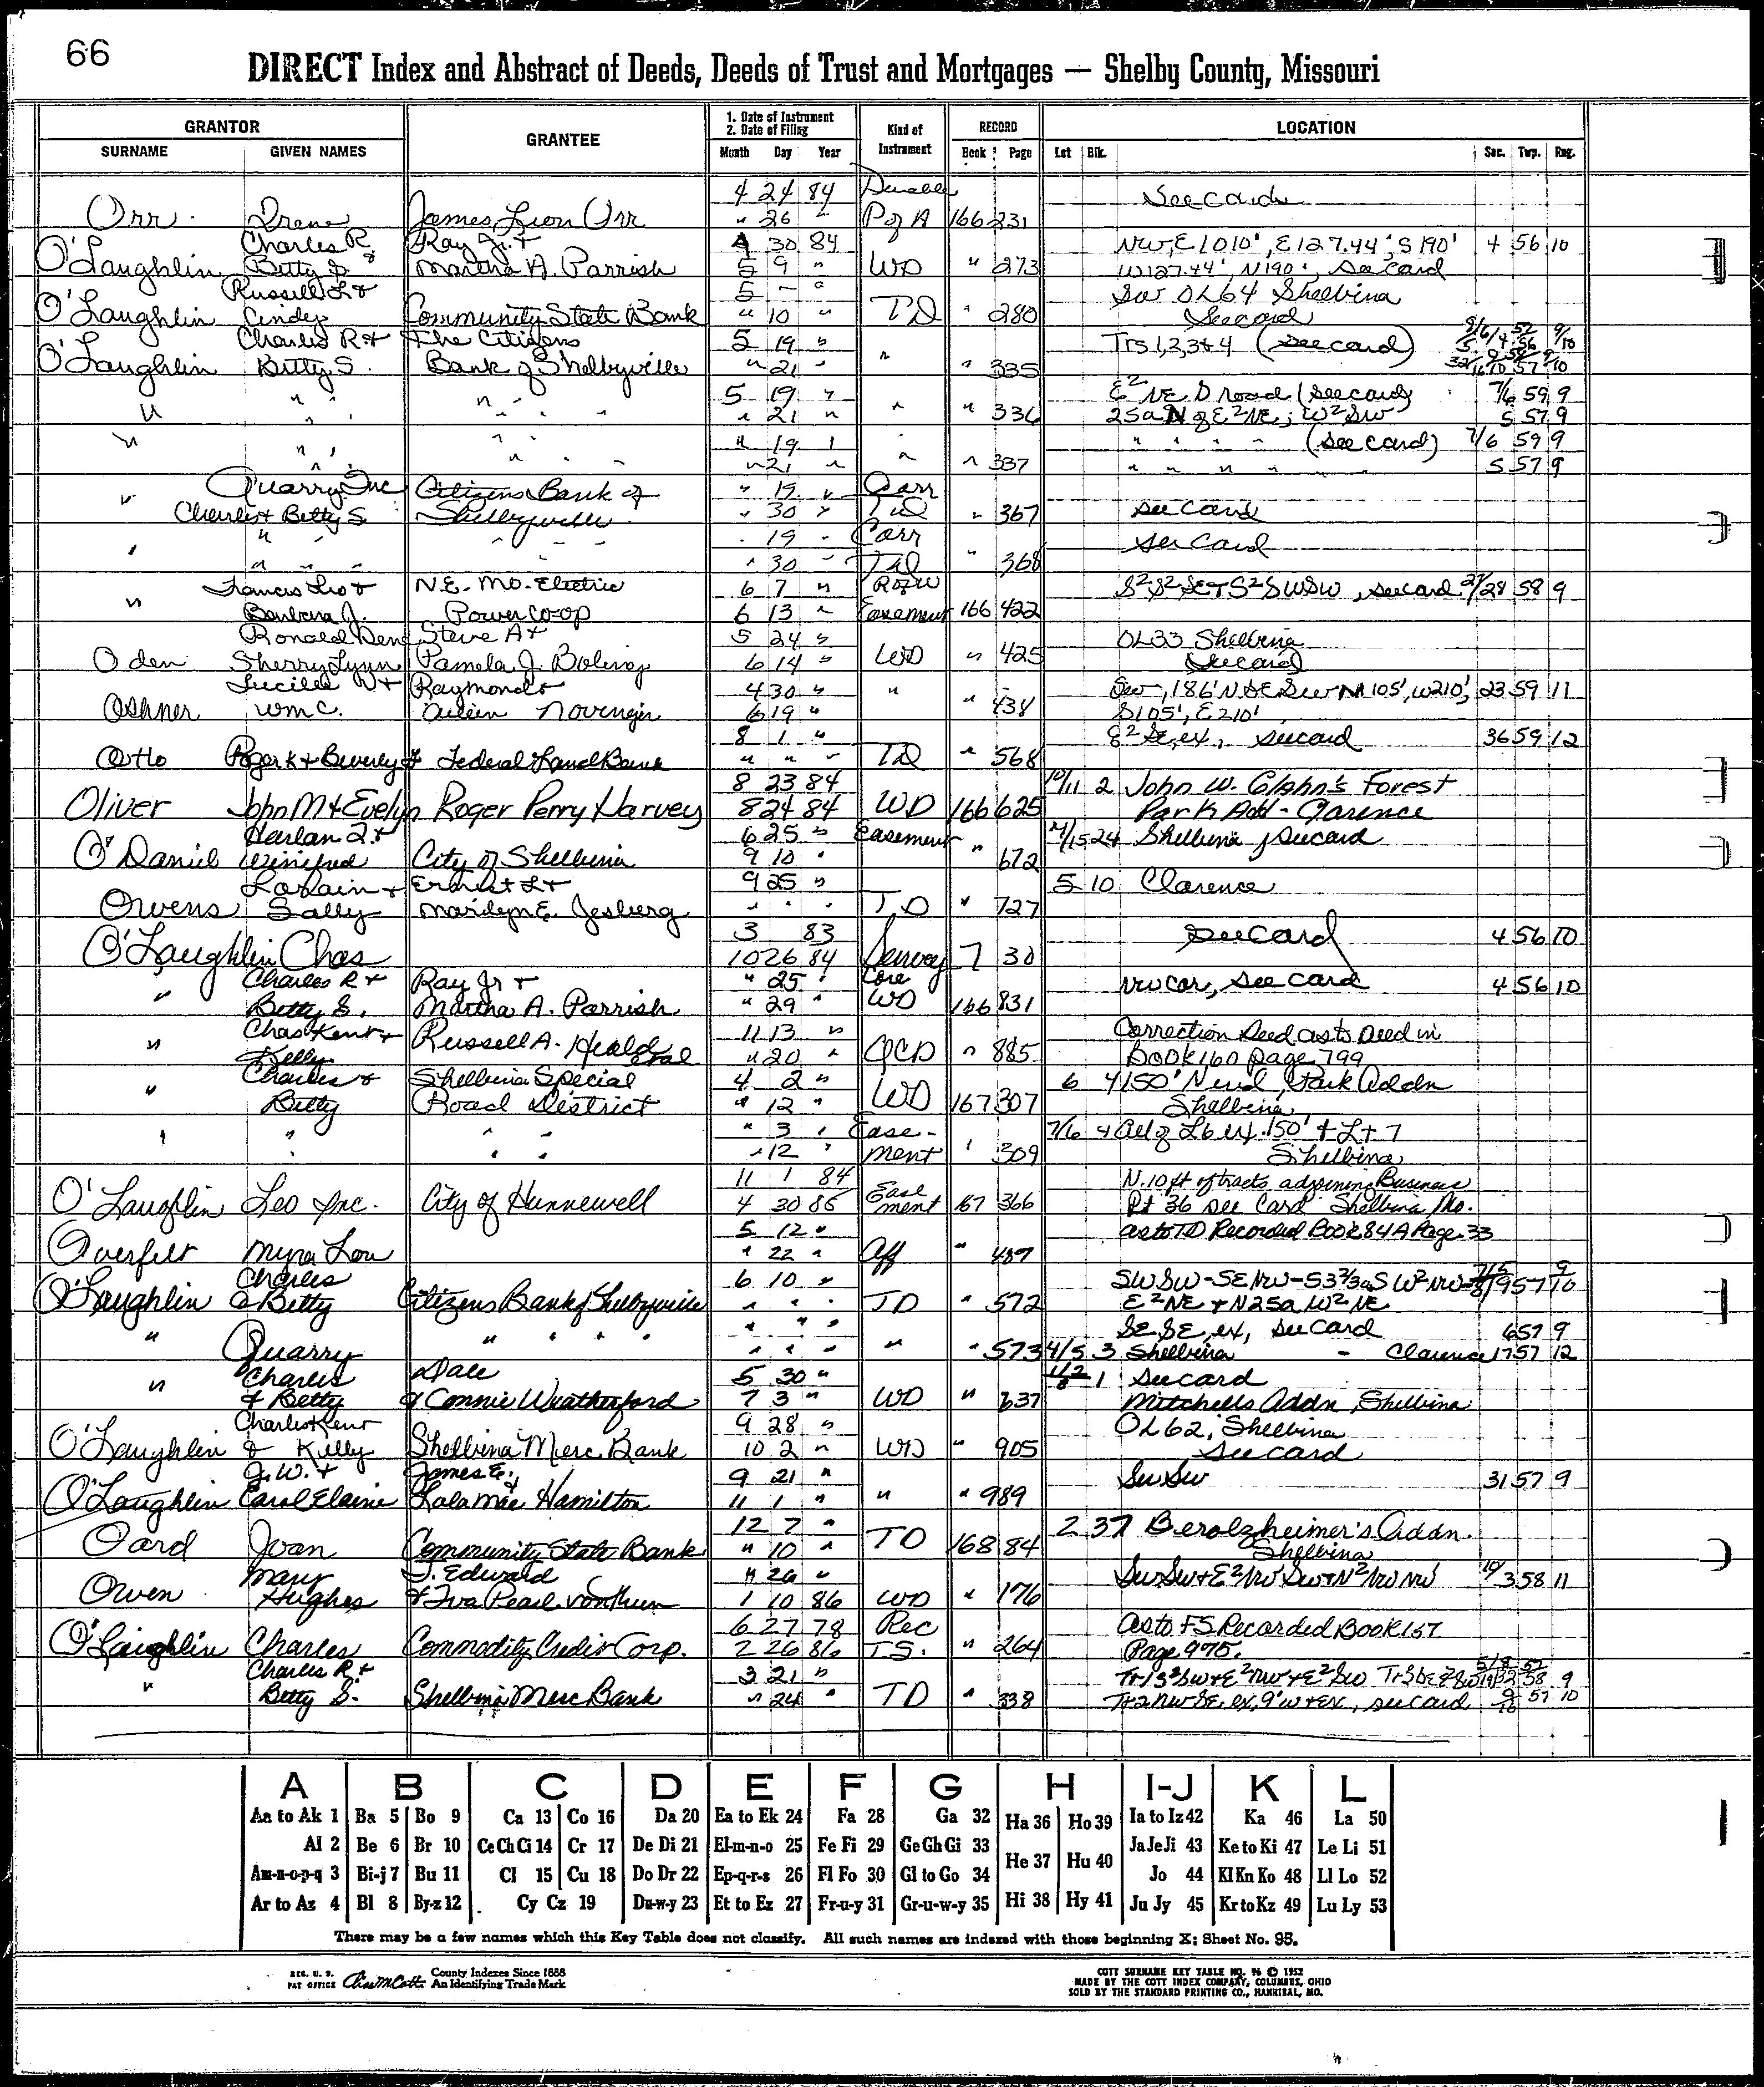 66
DIRECT Index and Abstract of Deeds, Deeds of Trust and Mortgages — Shelby County, Missouri
GRANTOR GRANTEE 1. Date of Instrument 2. Date of Filing Kind of Instrument RECORD LOCATION
SURNAME GIVEN NAMES Month Day Year Book Page Lot Blk. Sec. Twp. Rng.
4 24 84 Durable See card
Orr Irene James Leon Orr " 26 " P of A 166 231
Charles R. & Ray Jr. & 4 30 84 NW, E 1010', E 127.44', S 190' 4 56 10
O'Laughlin Betty S. Martha A. Parrish 5 9 " WD " 273 W 127.44', N 190', see card
Russell L & 5 - " SW OL 64 Shelbina
O'Laughlin Cindy Community State Bank " 10 " TD " 280 See card
Charles R & The Citizens 5 19 " Trs 1, 2, 3 & 4 (see card)
O'Laughlin Betty S. Bank of Shelbyville " 21 " " " 335
" " " " " 5 19 " E² NE S road (see card) 7/6 59 9
" 21 " " " 336 25a N of E² NE; W² SW 5 57 9
" " " " " " 19 " " " " " (see card) 7/6 59 9
" 21 " " " 337 " " " " " 5 57 9
" Quarry Inc Citizens Bank of " 19 " Corr
Charles & Betty S. Shelbyville " 30 " TD " 367 see card
" " " " " 19 " Corr see card
" " " " 30 " TD " 368
" Francis Leo & N.E. Mo. Electric 6 7 " R of W S² S² SE & S² SW SW, see card 27/28 58 9
Barbara J. Power co-op 6 13 " Easement 166 422
Ronald Dean Steve A & 5 24 " OL33 Shelbina
Oden Sherry Lynn Pamela J. Boling 6 14 " WD " 425 See card
Lucille N & Raymond & 4 30 " " SW, 186' N SE SW N 105', W 210', 23 59 11
Oshner Wm C. Aileen Novinger 6 19 " " 438 S 105', E 210'
8 1 " E² SE, ex, see card 36 59 12
Otto Roger K & Beverly J Federal Land Bank " " " TD " 568
8 23 84 10/11 2 John W. Glahn's Forest
Oliver John M & Evelyn Roger Perry Harvey 8 24 84 WD 166 625 Park Add - Clarence
Harlan Q. & 6 25 " Easement 15 24 Shelbina, see card
O'Daniel Winifred City of Shelbina 9 10 " " 672
Lorain & Ernest L & 9 25 " 5 10 Clarence
Owens Sally Marilyn E. Jesberg " " " TD " 727
3 83 see card 4 56 10
O'Laughlin Chas 10 26 84 Survey 7 30
" Charles R & Ray Jr & " 25 " Corr NW cor, see card 4 56 10
Betty S. Martha A. Parrish " 29 " WD 166 831
" Chas Kent & Russell A. Heald 11 13 " Correction Deed as to Deed in
Kelly etal " 20 " QCD " 885 Book 160 page 799
" Charles & Shelbina Special 4 2 " 6 4 150' N end, Park Addn
Betty Road District " 12 " WD 167 307 Shelbina
" " " " " 3 " Ease- 7/6 4 All of L6 ex. 150' & Lt 7
" 12 " ment " 309 Shelbina
11 1 84 N. 10 ft of tracts adjoining Business
O'Laughlin Leo Inc. City of Hunnewell 4 30 85 Easement 167 366 Rt 36 see Card Shelbina, Mo.
5 12 " as to TD Recorded Book 84A Page 33
Overfelt Myra Lou " 22 " Aff " 487
Charles 6 10 " SW SW - SE NW - 53 2/3a S W² NW
O'Laughlin & Betty Citizens Bank of Shelbyville " " " TD " 572 E² NE & N 25a W² NE
" " " " " " " " SE SE, ex, see card 6 57 9
Quarry " " " " " 573 4/5 3 Shelbina - Clarence 17 57 12
" Charles Dale 5 30 " 1 see card
& Betty & Connie Weatherford 7 3 " WD " 637 Mitchells Addn, Shelbina
Charles Kent 9 28 " OL62, Shelbina
O'Laughlin & Kelly Shelbina Merc. Bank 10 2 " WD " 905 see card
J. W. & James E. & 9 21 " SW SW 31 57 9
O'Laughlin Carol Elaine Lala Mae Hamilton 11 1 " " " 989
12 7 " 2 37 Berolzheimer's Addn.
Oard Joan Community State Bank " 10 " TD 168 84 Shelbina
Mary J. Edward " 26 " SW SW & E² NW SW & N² NW NW 10/3 58 11
Owen Hughes & Iva Pearl vonThun 1 10 86 WD " 176
6 27 78 Rec as to FS Recorded Book 157
O'Laighlin Charles Commodity Credit Corp. 2 26 86 T.S. " 264 Page 975.
" Charles R & 3 21 " Tr 1 S² SW & E² NW & E² SW
Betty S. Shelbina Merc Bank " 24 " TD " 338 Tr 2 NW SE, ex, 9' W & ex, see card
A B C D E F G H I-J K L
Aa to Ak 1 Ba 5 Bo 9 Ca 13 Co 16 Da 20 Ea to Ek 24 Fa 28 Ga 32 Ha 36 Ho 39 Ia to Iz 42 Ka 46 La 50
Al 2 Be 6 Br 10 Ce Ch Ci 14 Cr 17 De Di 21 El-m-n-o 25 Fe Fi 29 Ge Gh Gi 33 He 37 Hu 40 Ja Je Ji 43 Ke to Ki 47 Le Li 51
Am-n-o-p-q 3 Bi-j 7 Bu 11 Cl 15 Cu 18 Do Dr 22 Ep-q-r-s 26 Fl Fo 30 Gl to Go 34 Jo 44 Kl Kn Ko 48 Ll Lo 52
Ar to Az 4 Bl 8 By-z 12 Cy Cz 19 Du-w-y 23 Et to Ez 27 Fr-u-y 31 Gr-u-w-y 35 Hi 38 Hy 41 Ju Jy 45 Kr to Kz 49 Lu Ly 53
There may be a few names which this Key Table does not classify. All such names are indexed with those beginning X; Sheet No. 95.
REG. U. S. PAT OFFICE County Indexes Since 1888 An Identifying Trade Mark
COTT SURNAME KEY TABLE NO. 96 © 1952
MADE BY THE COTT INDEX COMPANY, COLUMBUS, OHIO
SOLD BY THE STANDARD PRINTING CO., HANNIBAL, MO.